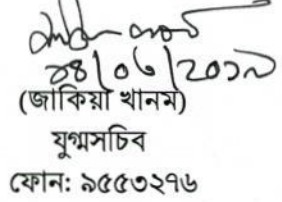 ০৪/০৬/২০১৯
(জাকিয়া খানম)
যুগ্মসচিব
ফোন: ৯৫৫৩২৭৬